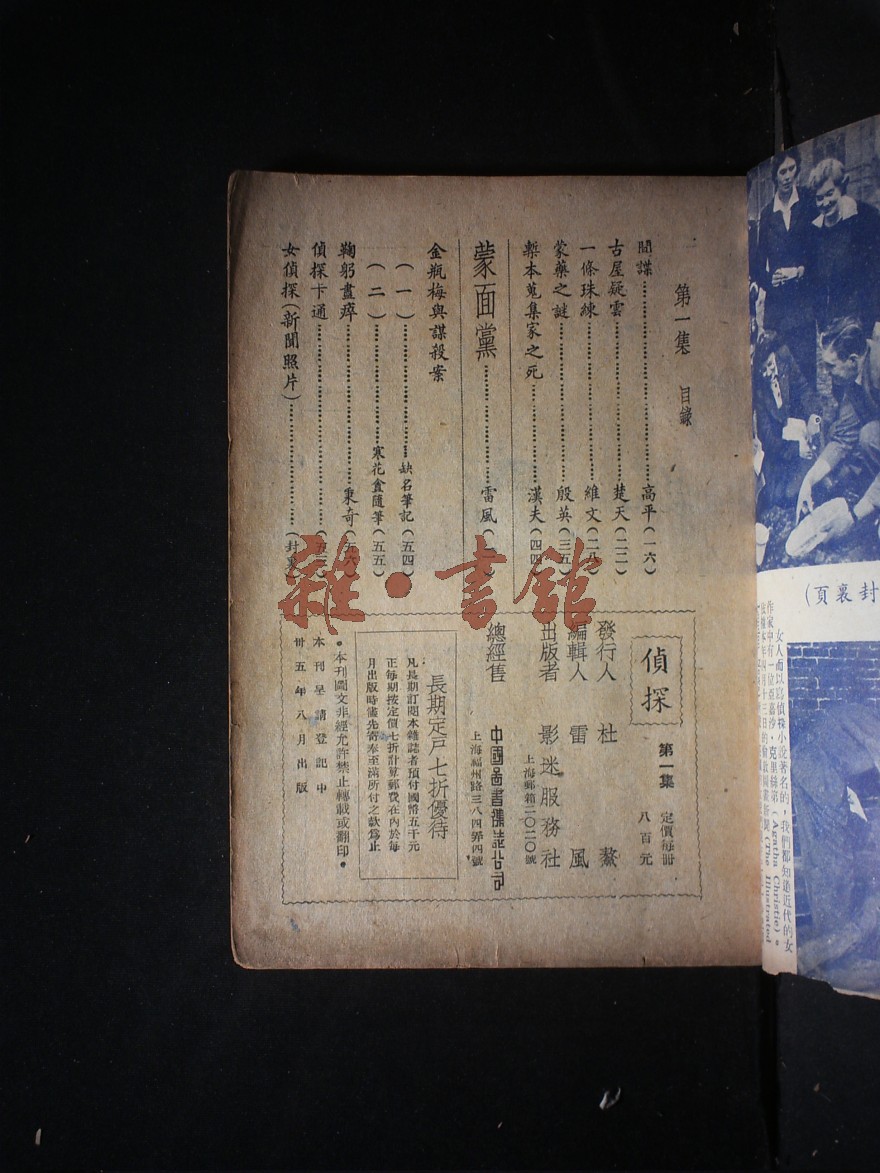 第一集 目錄
間諜……高平(一六)
古屋疑雲……楚天(二二)
一條珠練……維文(二八)
蒙藥之謎……殷英(三五)
槧本蒐集家之死……漢夫(四四)
蒙面黨……雷風
金瓶梅與謀殺案
(一)……缺名筆記(五四)
(二)……寒花盦隨筆(五五)
鞠躬盡瘁……秉奇(五六)
偵探卡通……
女偵探(新聞照片)……(封裏)
偵探
第一集 定價每冊 八百元
發行人 杜鰲
編輯人 雷風
出版者 影迷服務社
上海郵箱二〇二〇號
總經售 中國圖書雜誌公司
上海福州路三八四弄四號
長期定戶七折優待
凡長期訂閱本雜誌者預付國幣五千元
正每期按定價七折計算郵費在內於每
月出版時儘先寄奉至滿所付之款為止
•本刊圖文非經允許禁止轉載或翻印•
本刊呈請登記中
卅五年八月出版
雜·書館
封裏頁)
女人而以寫偵探小說著名的,我們都知道近代的女
作家中有一位亞嘉沙·克里絲第(Agatha Christie)。
(The Illustrated